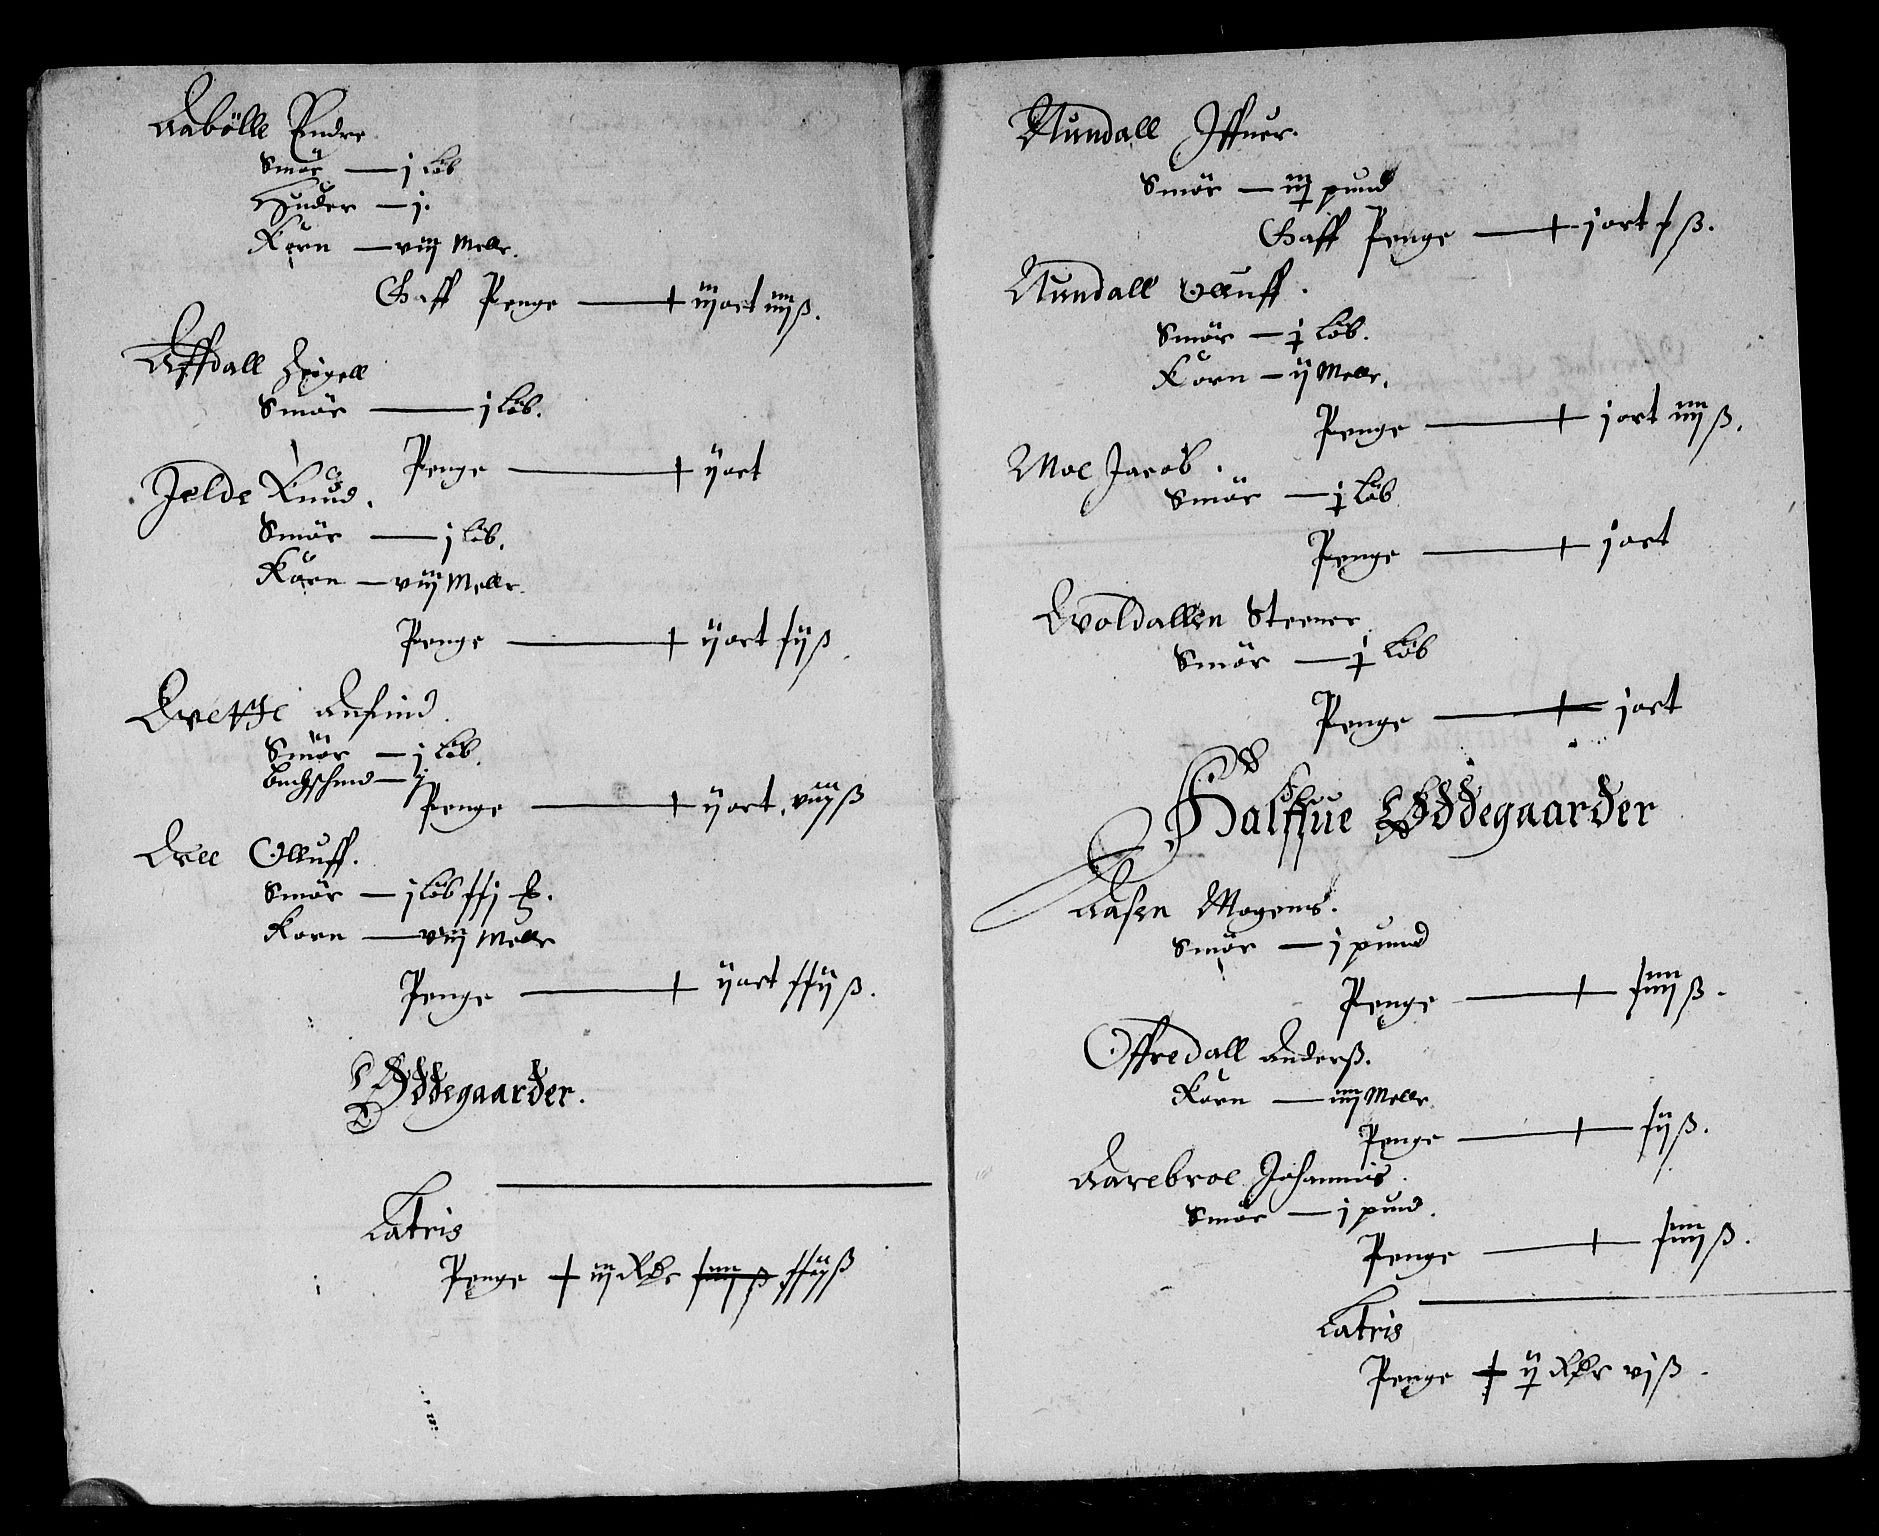 Aabölle Endre
Smör — j Löb
Huder — j.
Korn — viij Meller.
Gaff Penge — iijort iiijß.
Affdall Eigell
Smör — j Löb.
Penge — ijort
Jelde Knud.
Smör — j Löb.
Korn — viij Meller.
Penge — ijort xijß
Qvette Anfind.
Smör — j Löb.
Buchschind — j
Penge — ijort. viijß
Qvee Olluff.
Smör — j Löb xxj
Korn — viij Meller
Penge — ijort xxijß.
Øddegaarder.
Latris
Penge — iij Rdr xxijß
Nundall Iffuer.
Smör — iij pund
Gaff Penge — jort xß.
Nundall Olluff.
Smör — j Löb.
Korn — ij Meller.
Penge — jort iiijß.
Moe Jacob.
Smör — j Löb
Penge — jort
Qvoldallen Steener
Smör — j Löb
Penge — jort
Halffue Øddegaarder
Aasen Mogens.
Smör — j pund
Penge — xiiijß.
Offredall Anderß.
Korn — iiij Meller
Penge — xijß.
Aarebroe Johannis.
Smör — j pund.
Penge — xiiijß.
Latris
Penge — ij Rdr vjß.